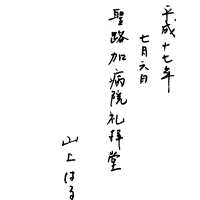 平成十七年
七月六日
聖路加病院礼拝堂
山上はる